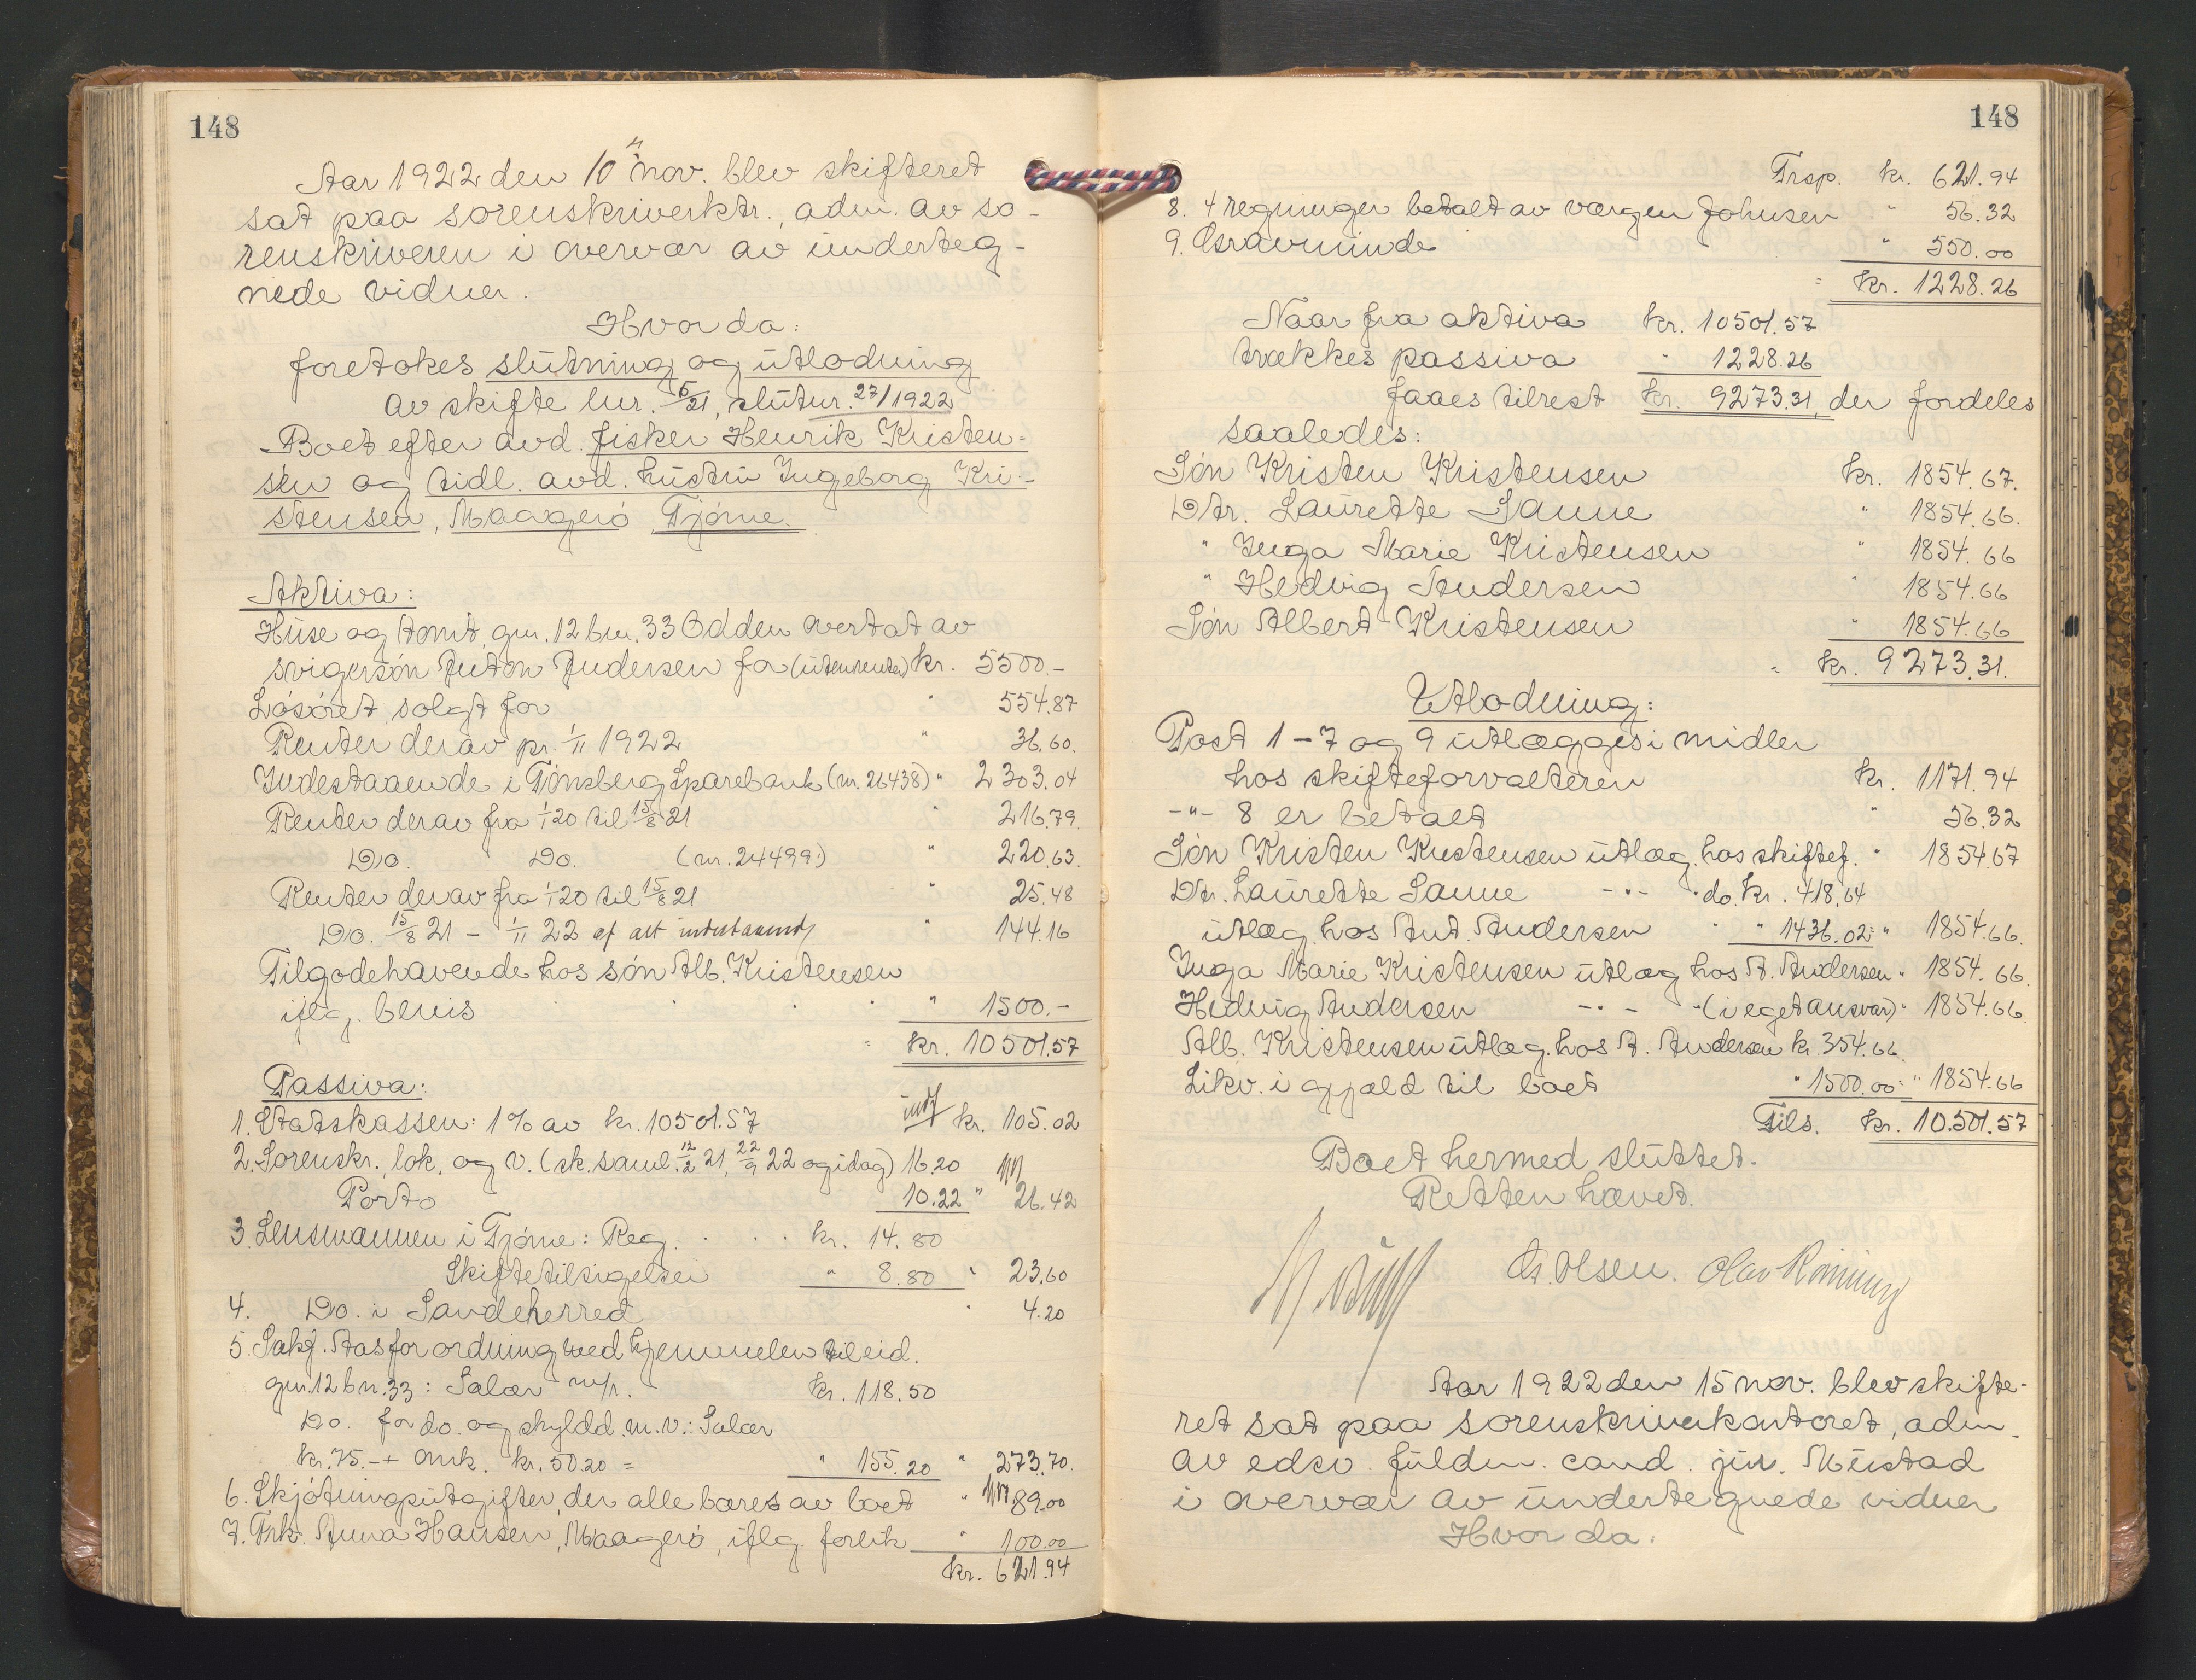 148
Aar 1922 den 10 nov. blev skifteret
sat paa sorenskriverktr., adm. av so-
renskriveren i overvær av underteg-
nede vidner.
Hvorda:
foretokes slutning og utlodning
av skifte lnr. 5/21, slutnr. 27/1922
Boet efter avd. fisker Henrik Kristen-
sen og tidl. avd. hustru Ingeborg Kri-
stensen, Maagerø Tjøme.
Aktiva:
Huse og tomt, gnr. 12 bnr. 33 Odden overtat av
svigersøn Anton Andersen for (uten renter) kr. 5500.-
Løsøret solgt for " 554.87
Renter derav pr. 1/11 1922 " 36.60.
Indestaaende i Tønsberg Sparebank (nr. 26438) " 2303.04
Renter derav fra 1/1 20 til 15/8 21 " 216.79.
Do. Do. (nr. 24499:) " 220.63.
Renter derav fra 1/1 20 til 15/8 21 " 25.48
Do. 15/8 21 - 1/11 22 af alt indestaaende " 144.16
Tilgodehavende hos søn Alb. Kristensen
iflg. bevis " 1500.-
= kr. 10501.57
Passiva:
1. Statskassen: 1% av kr. 10501.57 kr. 105.02
2. Sorenskr., lok. og v. (sk. saml. 12/2 21, 22/9 22 og idag) 16.20
Porto 10.22 " 26.42
3. Lensmannen i Tjøme: Reg. kr. 14.80
Skiftetilsigelser " 8.80 " 23.60
4. Do. i Sandeherred " 4.20
5. Sakf. Aas for ordning med hjemmelen til eid.
gnr. 12 bn. 33: Salær m/r. kr. 118.50
Do. for do. og skyldd. m.v.: Salær
kr. 75.- + omk. kr. 50.20 = " 155.20 " 273.70.
6. Skjøtningsutgifter, der alle bæres av boet " 89.00
7. Frk. Anna Hansen, Maagerø, iflg. forlik " 100.00
kr. 621.94
148
Trsp. kr. 621.94
8. 4 regninger betalt av værgen Johnsen " 56.32
9. Gravminde " 550.00
= kr. 1228.26
Naar fra aktiva kr. 10501.57
trækkes passiva " 1228.26
faaes tilrest kr. 9273.31, der fordeles
saaledes:
Søn Kristen Kristensen kr. 1854.67.
Dtr. Laurette Sanne " 1854.66.
" Inga Marie Kristensen " 1854.66
" Hedvig Andersen " 1854.66
Søn Albert Kristensen " 1854.66
= kr. 9273.31.
Utlodning:
Post 1-7 og 9 utlægges i midler
hos skifteforvalteren kr. 1171.94
-"- 8 er betalt " 56.32
Søn Kristen Kristensen utlæg hos skiftef. " 1854.67
Dtr. Laurette Sanne -"- " do. kr. 418.64
utlæg hos Ant. Andersen " " 1436.02 = " 1854.66.
Inga Marie Kristensen utlæg hos A. Andersen " 1854.66.
Hedvig Andersen -"- " (i eget ansvar) " 1854.66.
Alb. Kristensen utlæg. hos A. Andersen kr. 354.66.
Likv. i gjæld til boet " 1500.00 = " 1854.66
Tils. kr. 10.501.57
Boet hermed sluttet.
Retten hævet.
Olsen. Olav
Aar 1922 den 15 nov. blev skifte-
ret sat paa sorenskriverkontoret, adm.
av edsv. fuldm. cand. jur. Mustad
i overvær av undertegnede vidner
Hvorda: